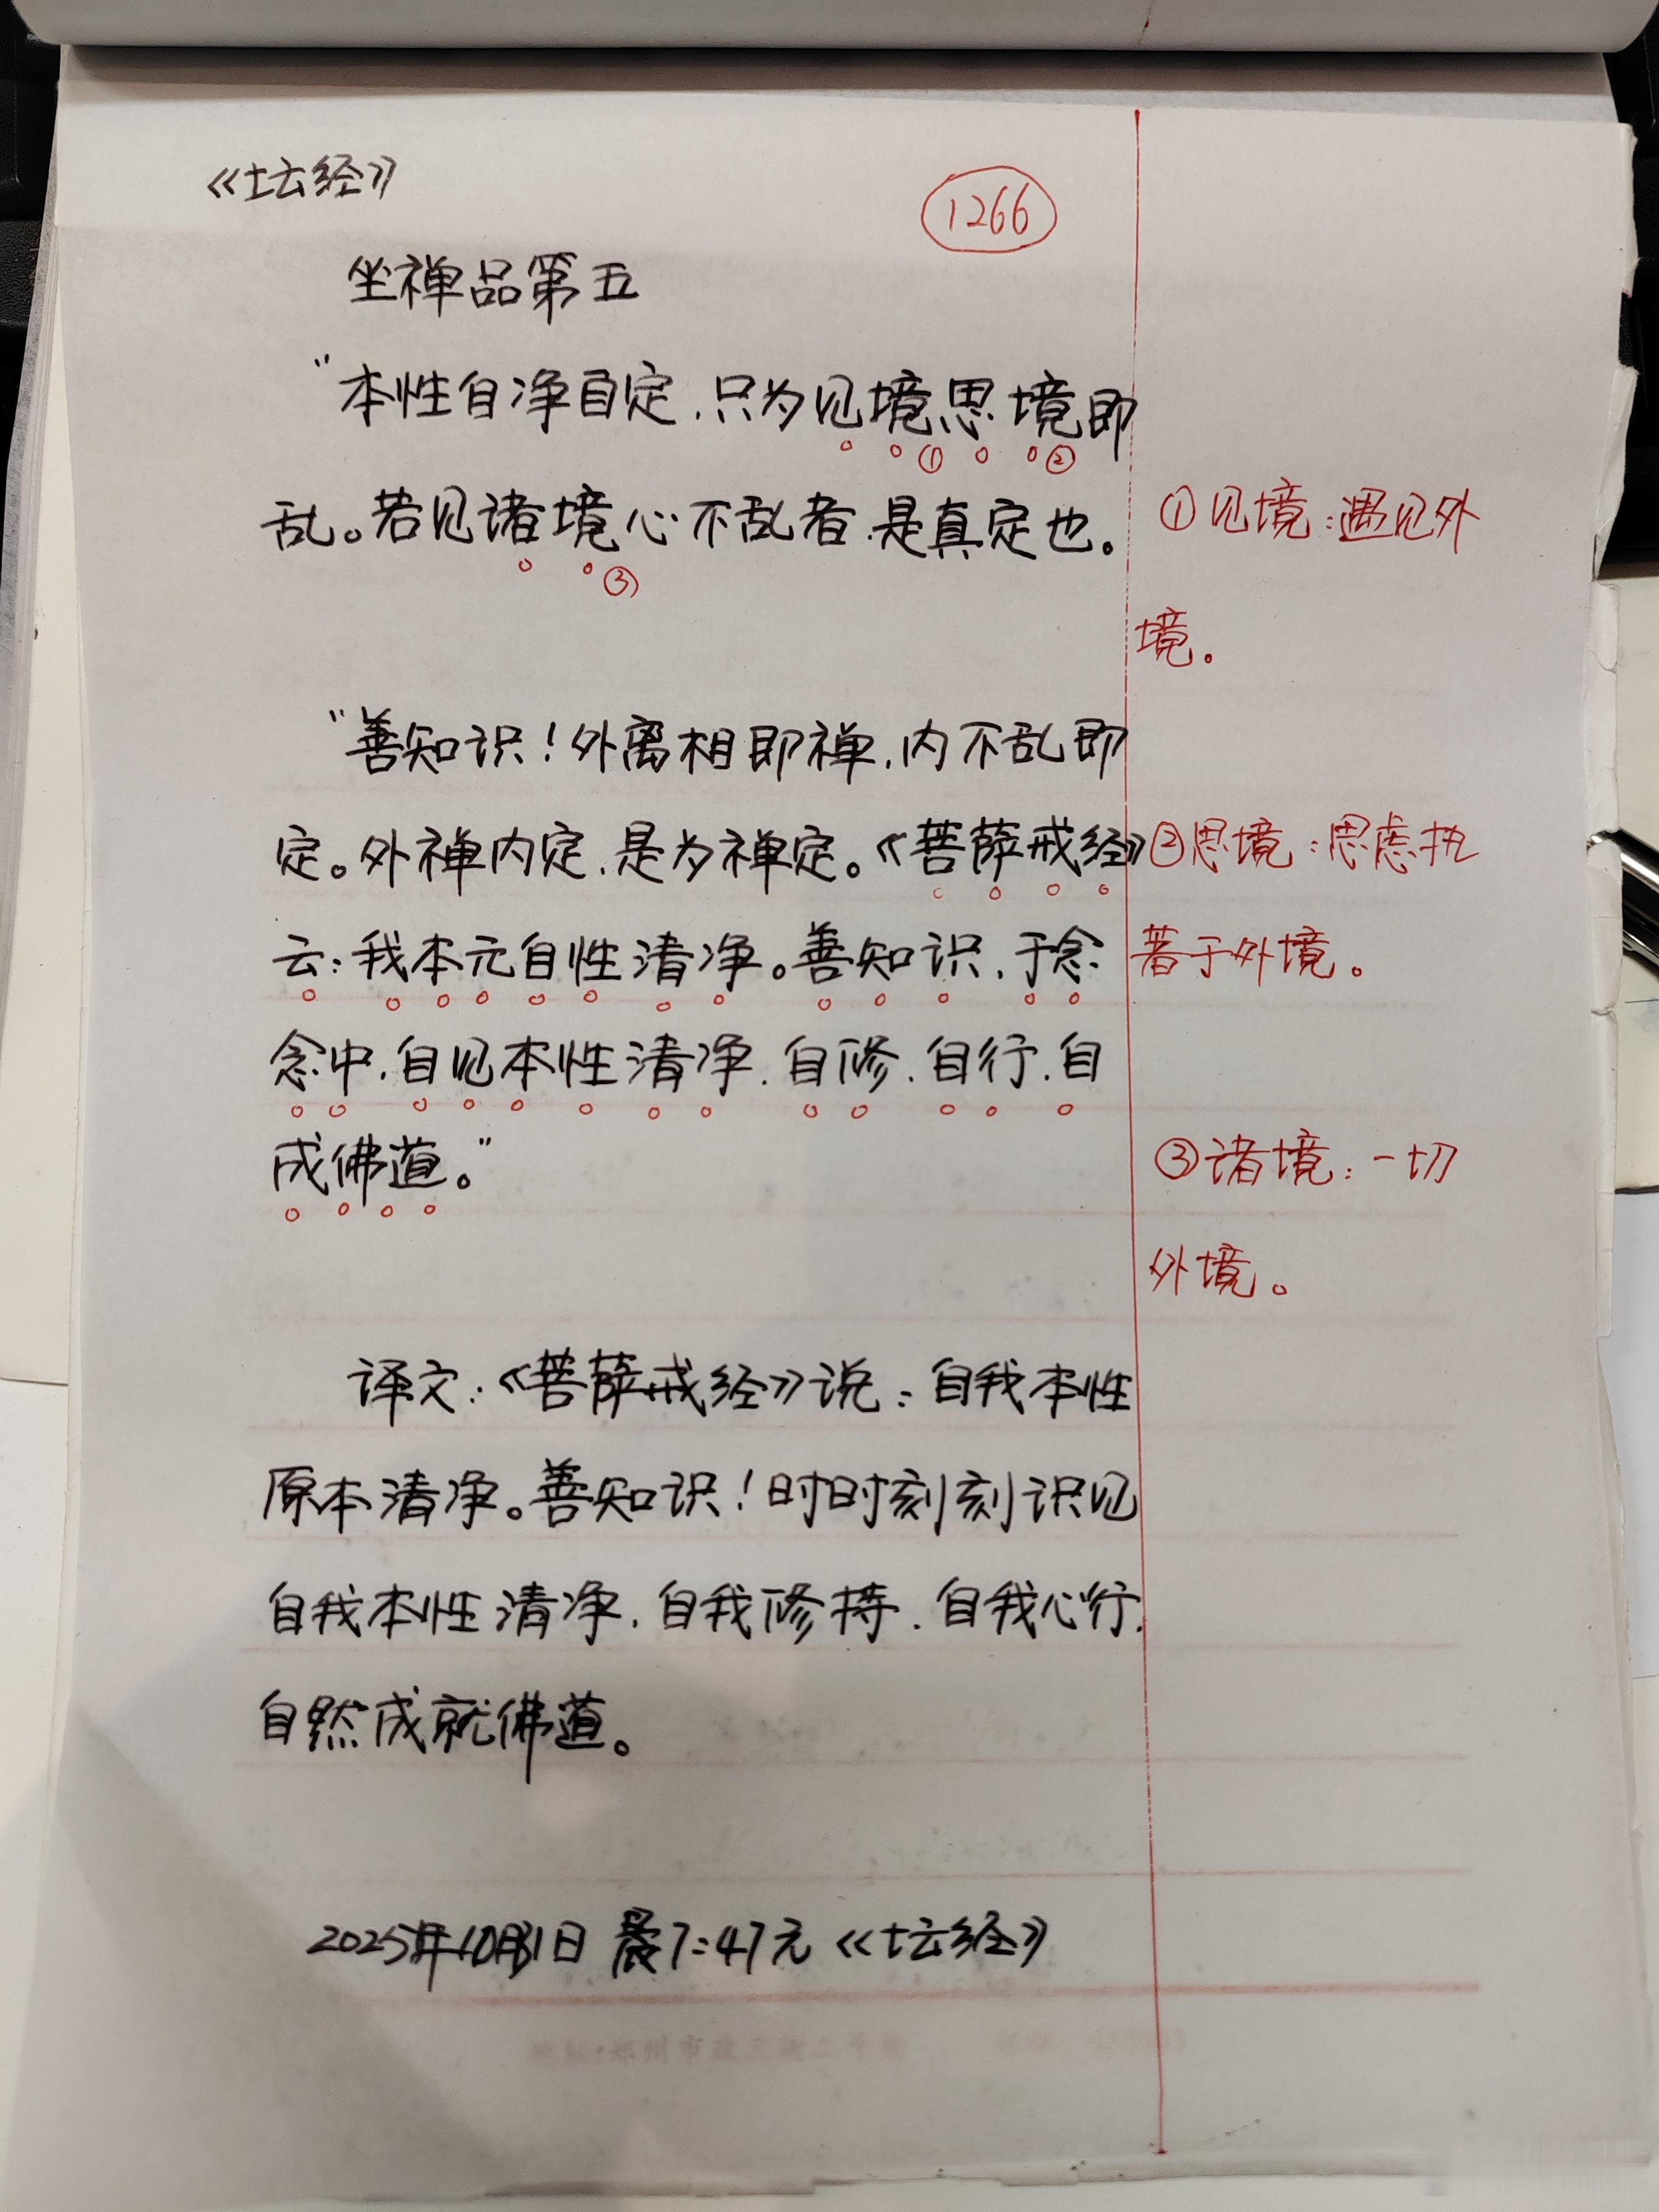 《坛经》
1266
坐禅品第五
“本性自净自定，只为见境思境即
①②
乱。若见诸境心不乱者，是真定也。
③
①见境：遇见外
境。
“善知识！外离相即禅，内不乱即
定。外禅内定，是为禅定。《菩萨戒经》
②思境：思虑执
云：我本元自性清净。善知识，于念
著于外境。
念中，自见本性清净，自修，自行，自
成佛道。”
③诸境：一切
外境。
译文：《菩萨戒经》说：自我本性
原本清净。善知识！时时刻刻识见
自我本性清净，自我修持，自我心行，
自然成就佛道。
2025年10月31日 晨7:47元《坛经》